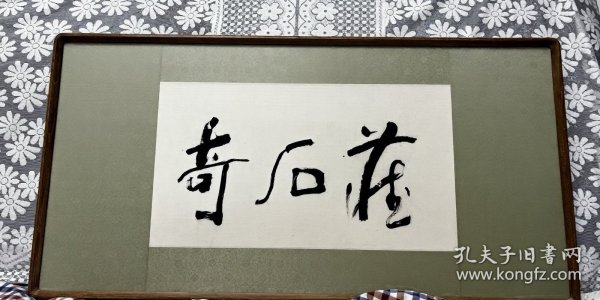 奇石莊
孔夫子旧书网
www.kongfz.com